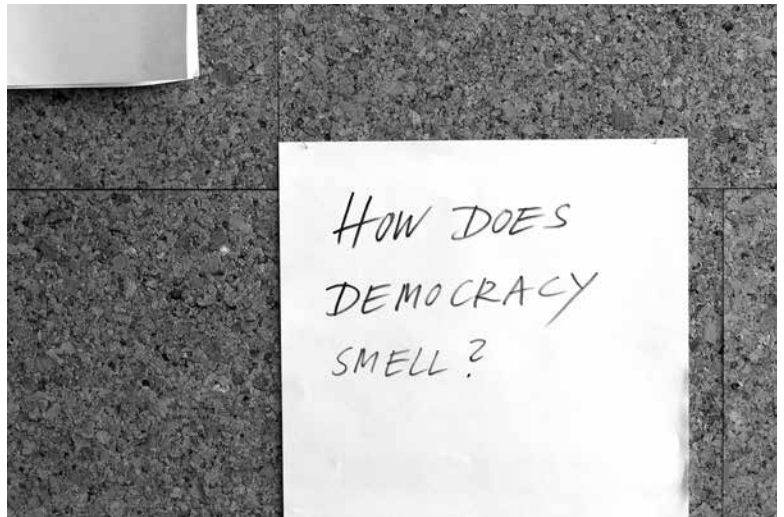 HOW DOES
DEMOCRACY
SMELL?